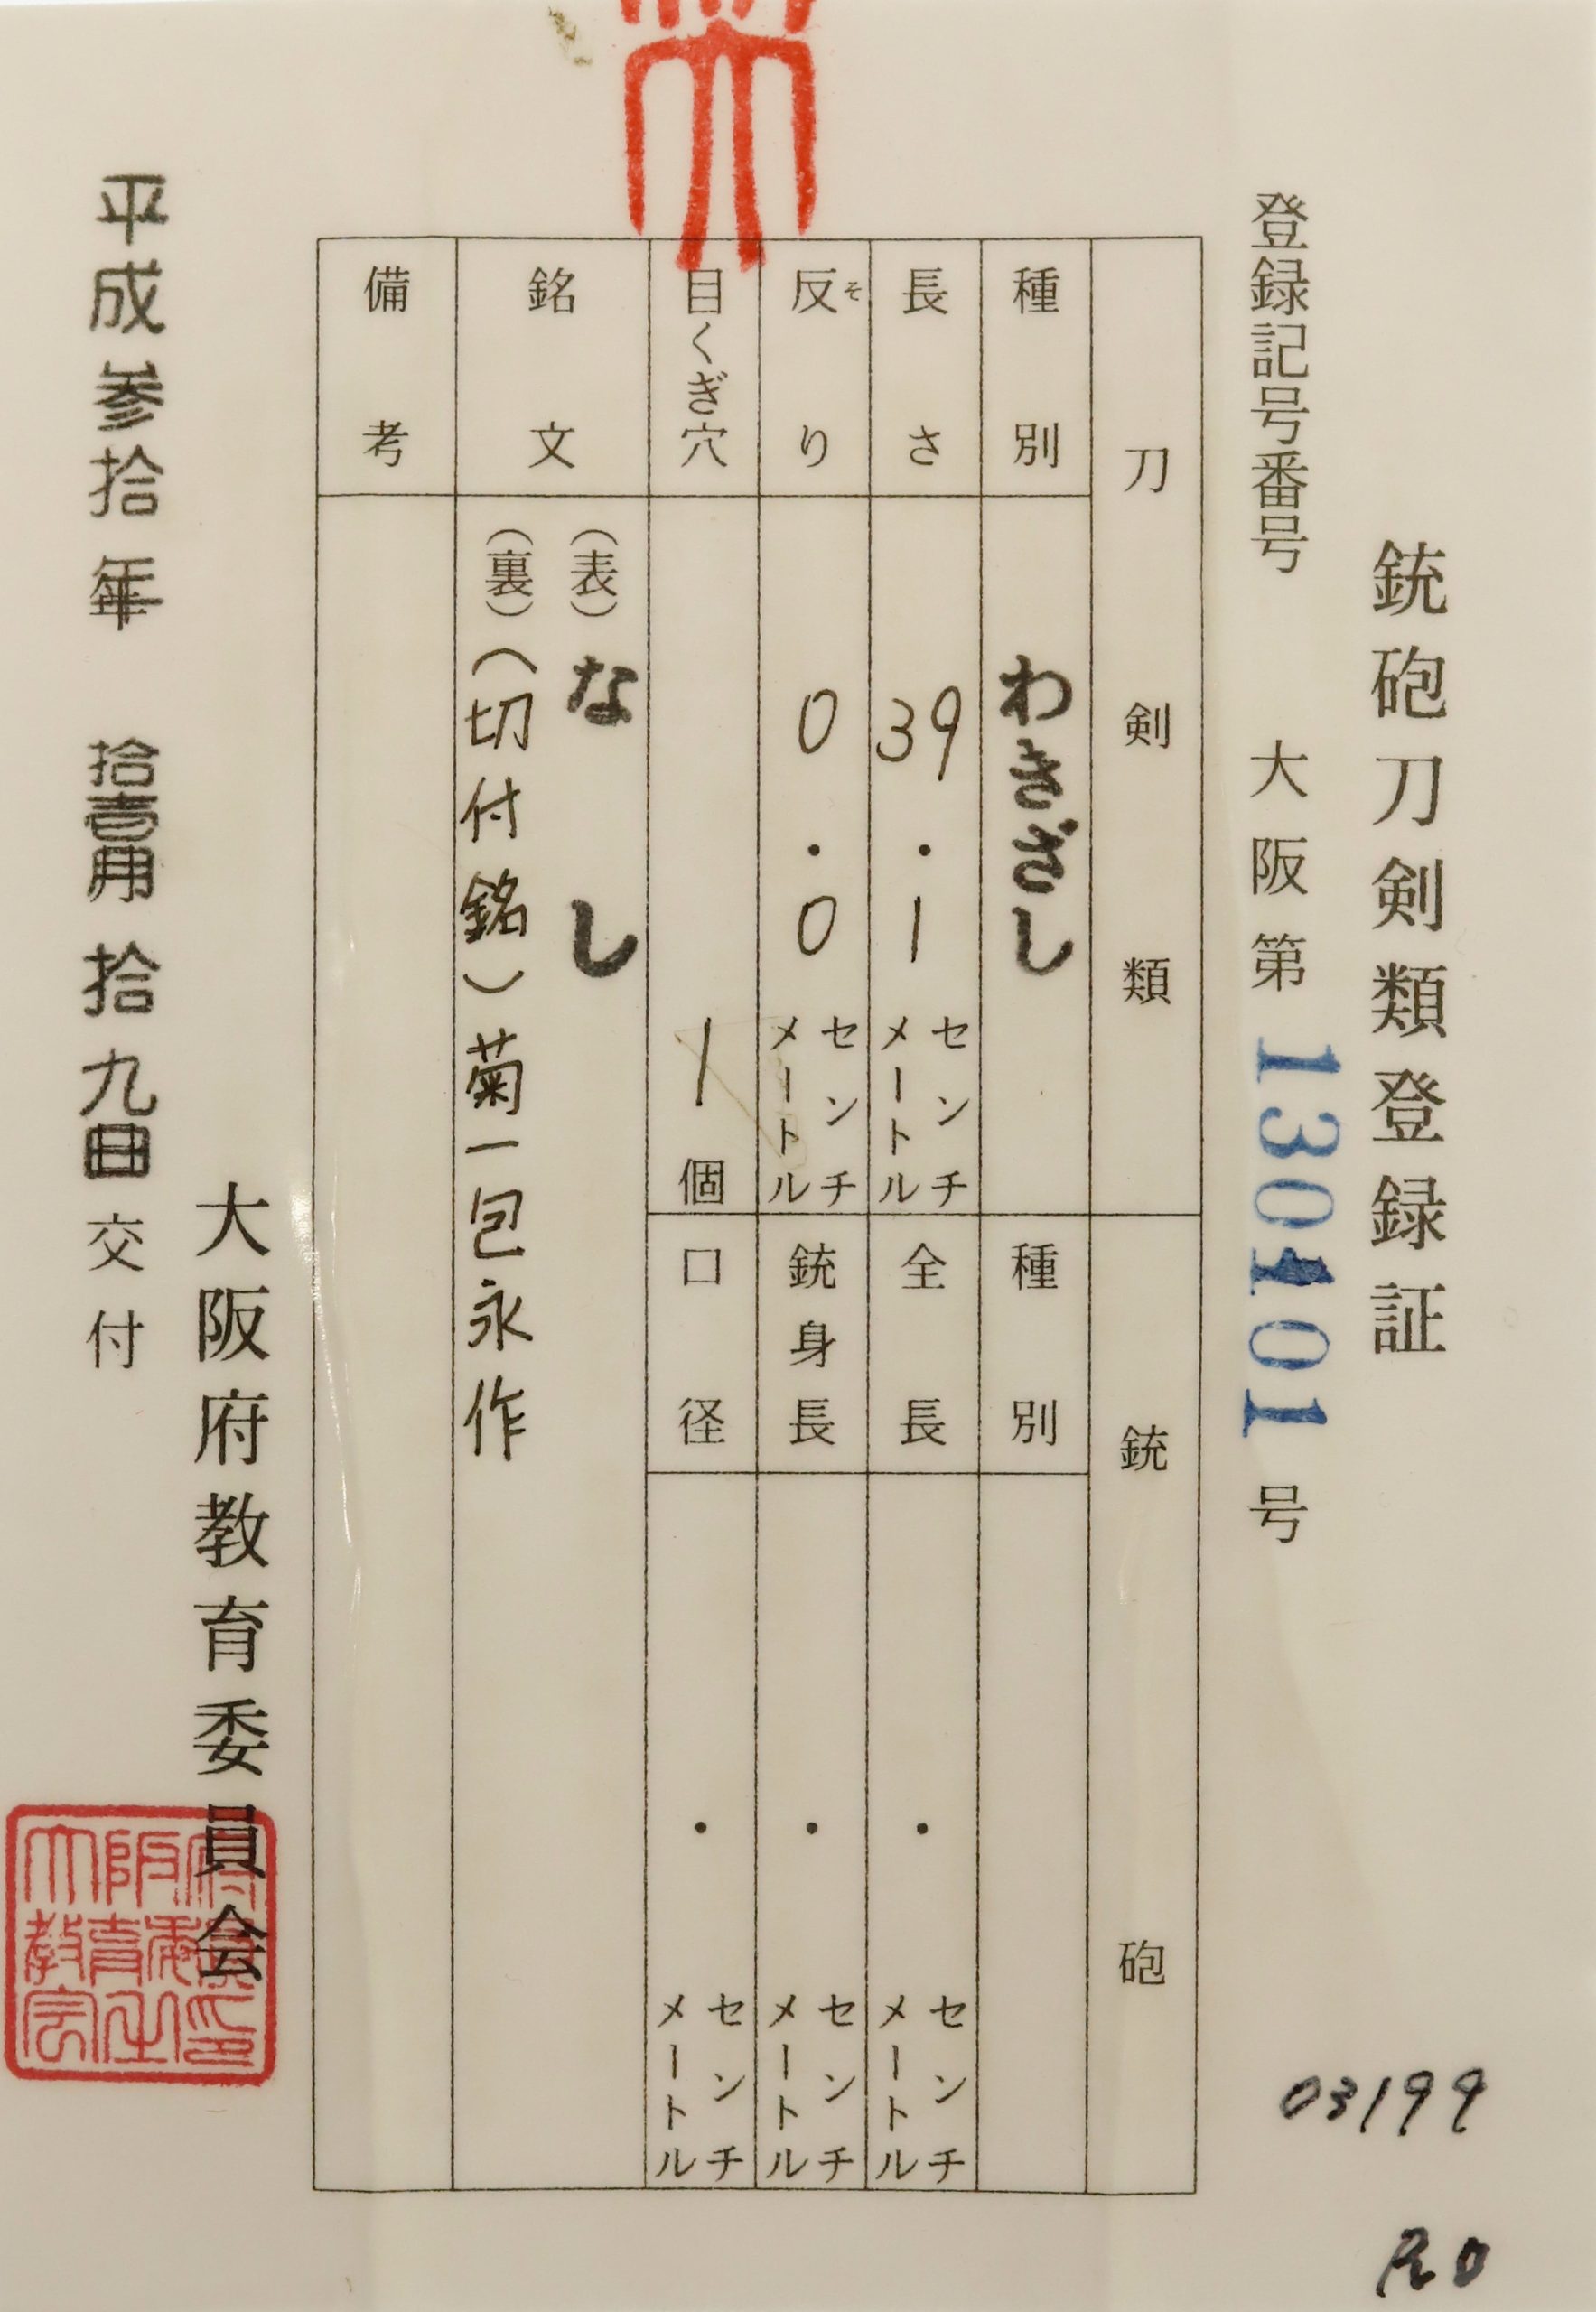 銃砲刀剣類登録証
登録記号番号 大阪第 130101 号
刀剣類
種別 わきざし
長さ 39.1 センチメートル
反り 0.0 センチメートル
そ
目くぎ穴 1 個
銘文 (表) なし
(裏) (切付銘) 菊一包永作
備考
銃砲
種別
全長 ・ センチメートル
銃身長 ・ センチメートル
口径 ・ センチメートル
大阪府教育委員会
平成参拾年 拾壹月 拾九日 交付
03199